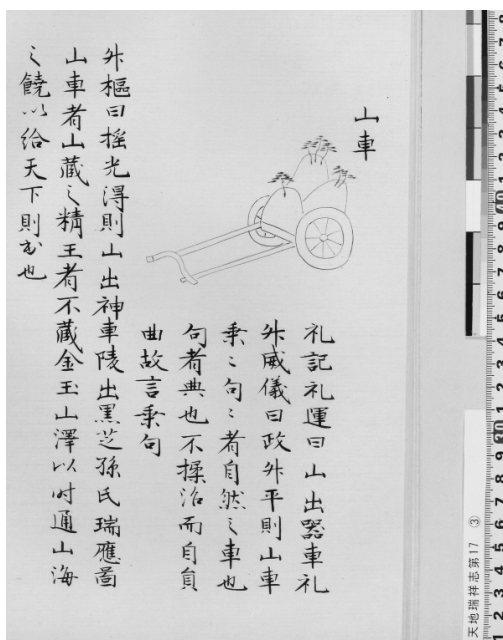 山車
礼記礼運曰山出器車礼
斗威儀曰政升平則山車
乗〻句〻者自然之車也
句者典也不揉治而自負
曲故言乗句
斗樞曰揺光得則山出神車陵出黒芝孫氏瑞應圖
山車者山藏之精王者不藏金玉山澤以时通山海
之饒以給天下則出也
天地瑞祥志第17 ③